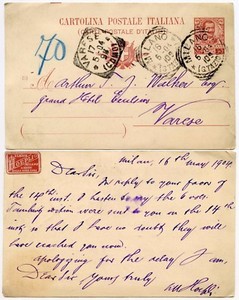 CARTOLINA POSTALE ITALIANA
(CARTE POSTALE D'ITALIE)
70
VARESE
MILANO
MILANO
Arthur J. Walker Esq
Grand Hôtel Excelsior
Varese
Milan, 16th May 1904
Dear Sir,
In reply to your favor of
the 14th inst. I hasten to say the 6 vols.
Tauchnitz edition were sent you on the 14th
inst. so that I have no doubt they will
have reached you now.
Apologising for the delay I am,
Dear Sir yours truly,
Hoepli